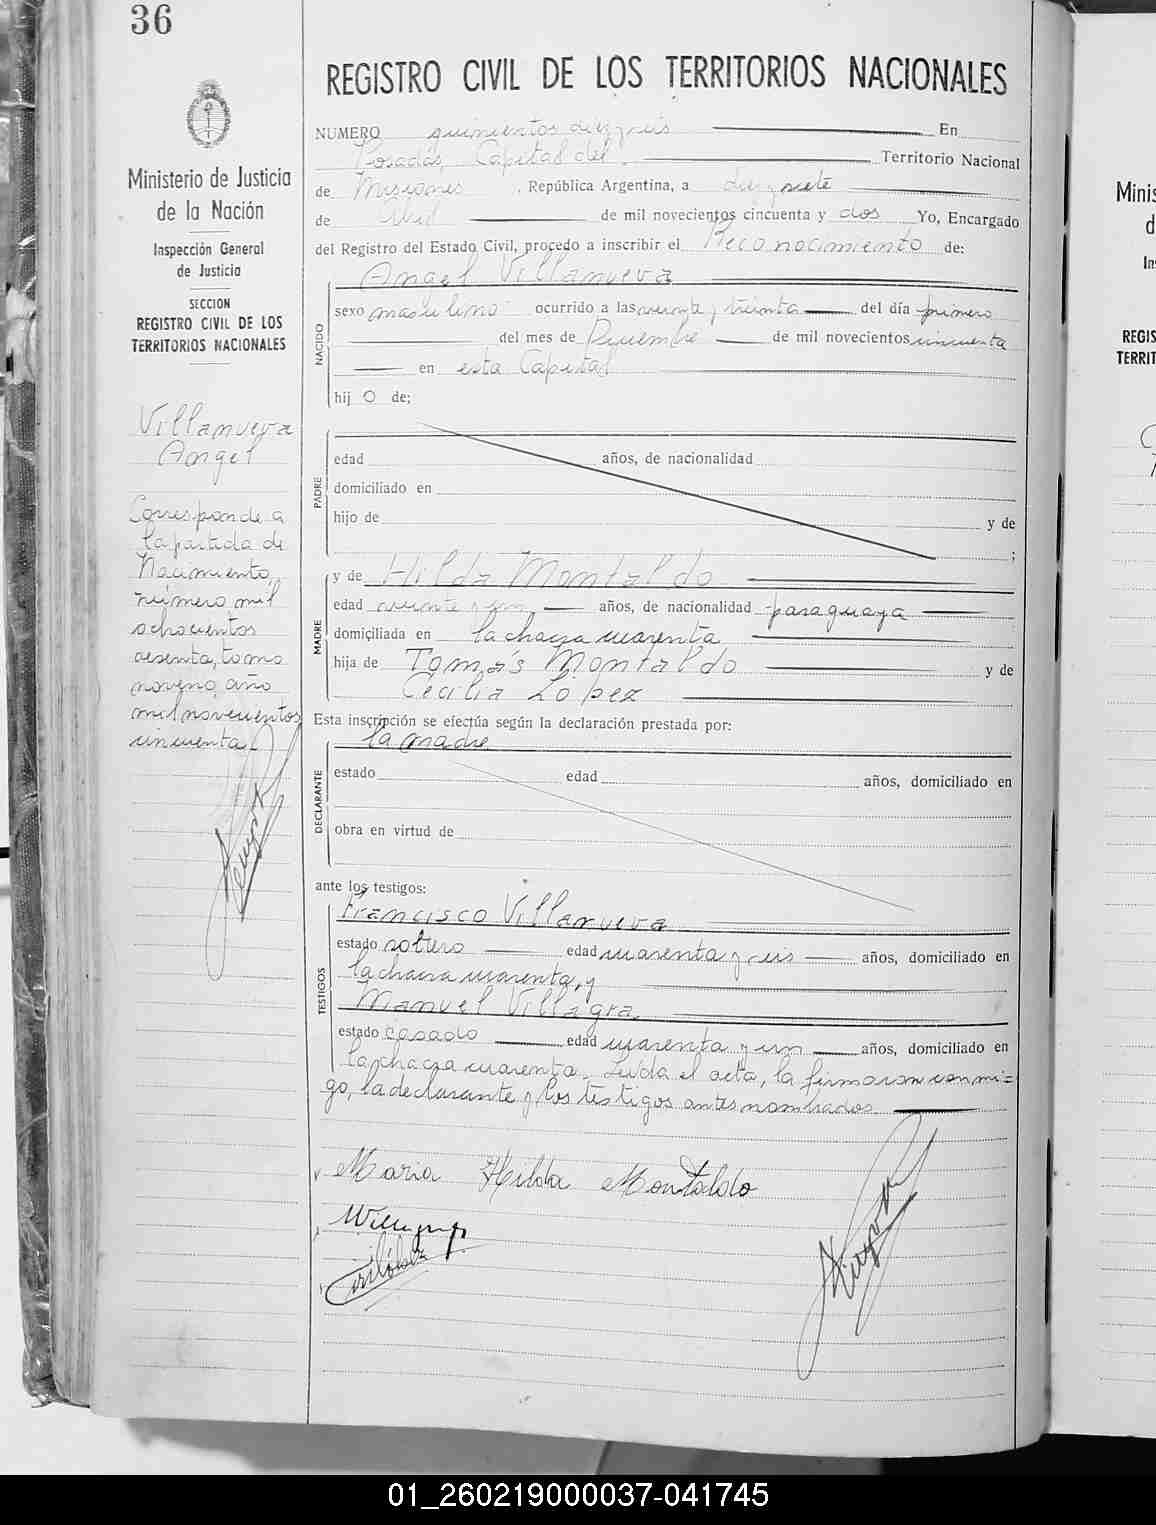 36
REGISTRO CIVIL DE LOS TERRITORIOS NACIONALES
Ministerio de Justicia
de la Nación
Inspección General
de Justicia
SECCION
REGISTRO CIVIL DE LOS
TERRITORIOS NACIONALES
Villanueva
Angel
Corresponde a
la partida de
Nacimiento,
número mil
ochocientos
sesenta, tomo
noveno, año
mil novecientos
cincuenta.
NUMERO quinientos diez y seis En
Posadas, Capital del Territorio Nacional
de Misiones, República Argentina, a diez y siete
de Abril de mil novecientos cincuenta y dos Yo, Encargado
del Registro del Estado Civil, procedo a inscribir el Reconocimiento de:
Angel Villanueva
NACIDO
sexo masculino ocurrido a las veinte y treinta del día primero
del mes de Diciembre de mil novecientos cincuenta
en esta Capital
hijo de;
PADRE
edad años, de nacionalidad
domiciliado en
hijo de y de
;
MADRE
y de Hilda Montaldo
edad veinte y un años, de nacionalidad paraguaya
domiciliada en la chacra cuarenta
hija de Tomás Montaldo y de
Cecilia López
Esta inscripción se efectúa según la declaración prestada por:
la madre
DECLARANTE
estado edad años, domiciliado en
obra en virtud de
ante los testigos:
TESTIGOS
Francisco Villanueva
estado soltero edad cuarenta y seis años, domiciliado en
la chacra cuarenta, y
Manuel Villagra,
estado casado edad cuarenta y un años, domiciliado en
la chacra cuarenta. Leída el acta, la firmaron conmi=
go, la declarante y los testigos antes nombrados
Maria Hilda Montaldo
Minis
d
In
REGIS
TERRIT
01_260219000037-041745